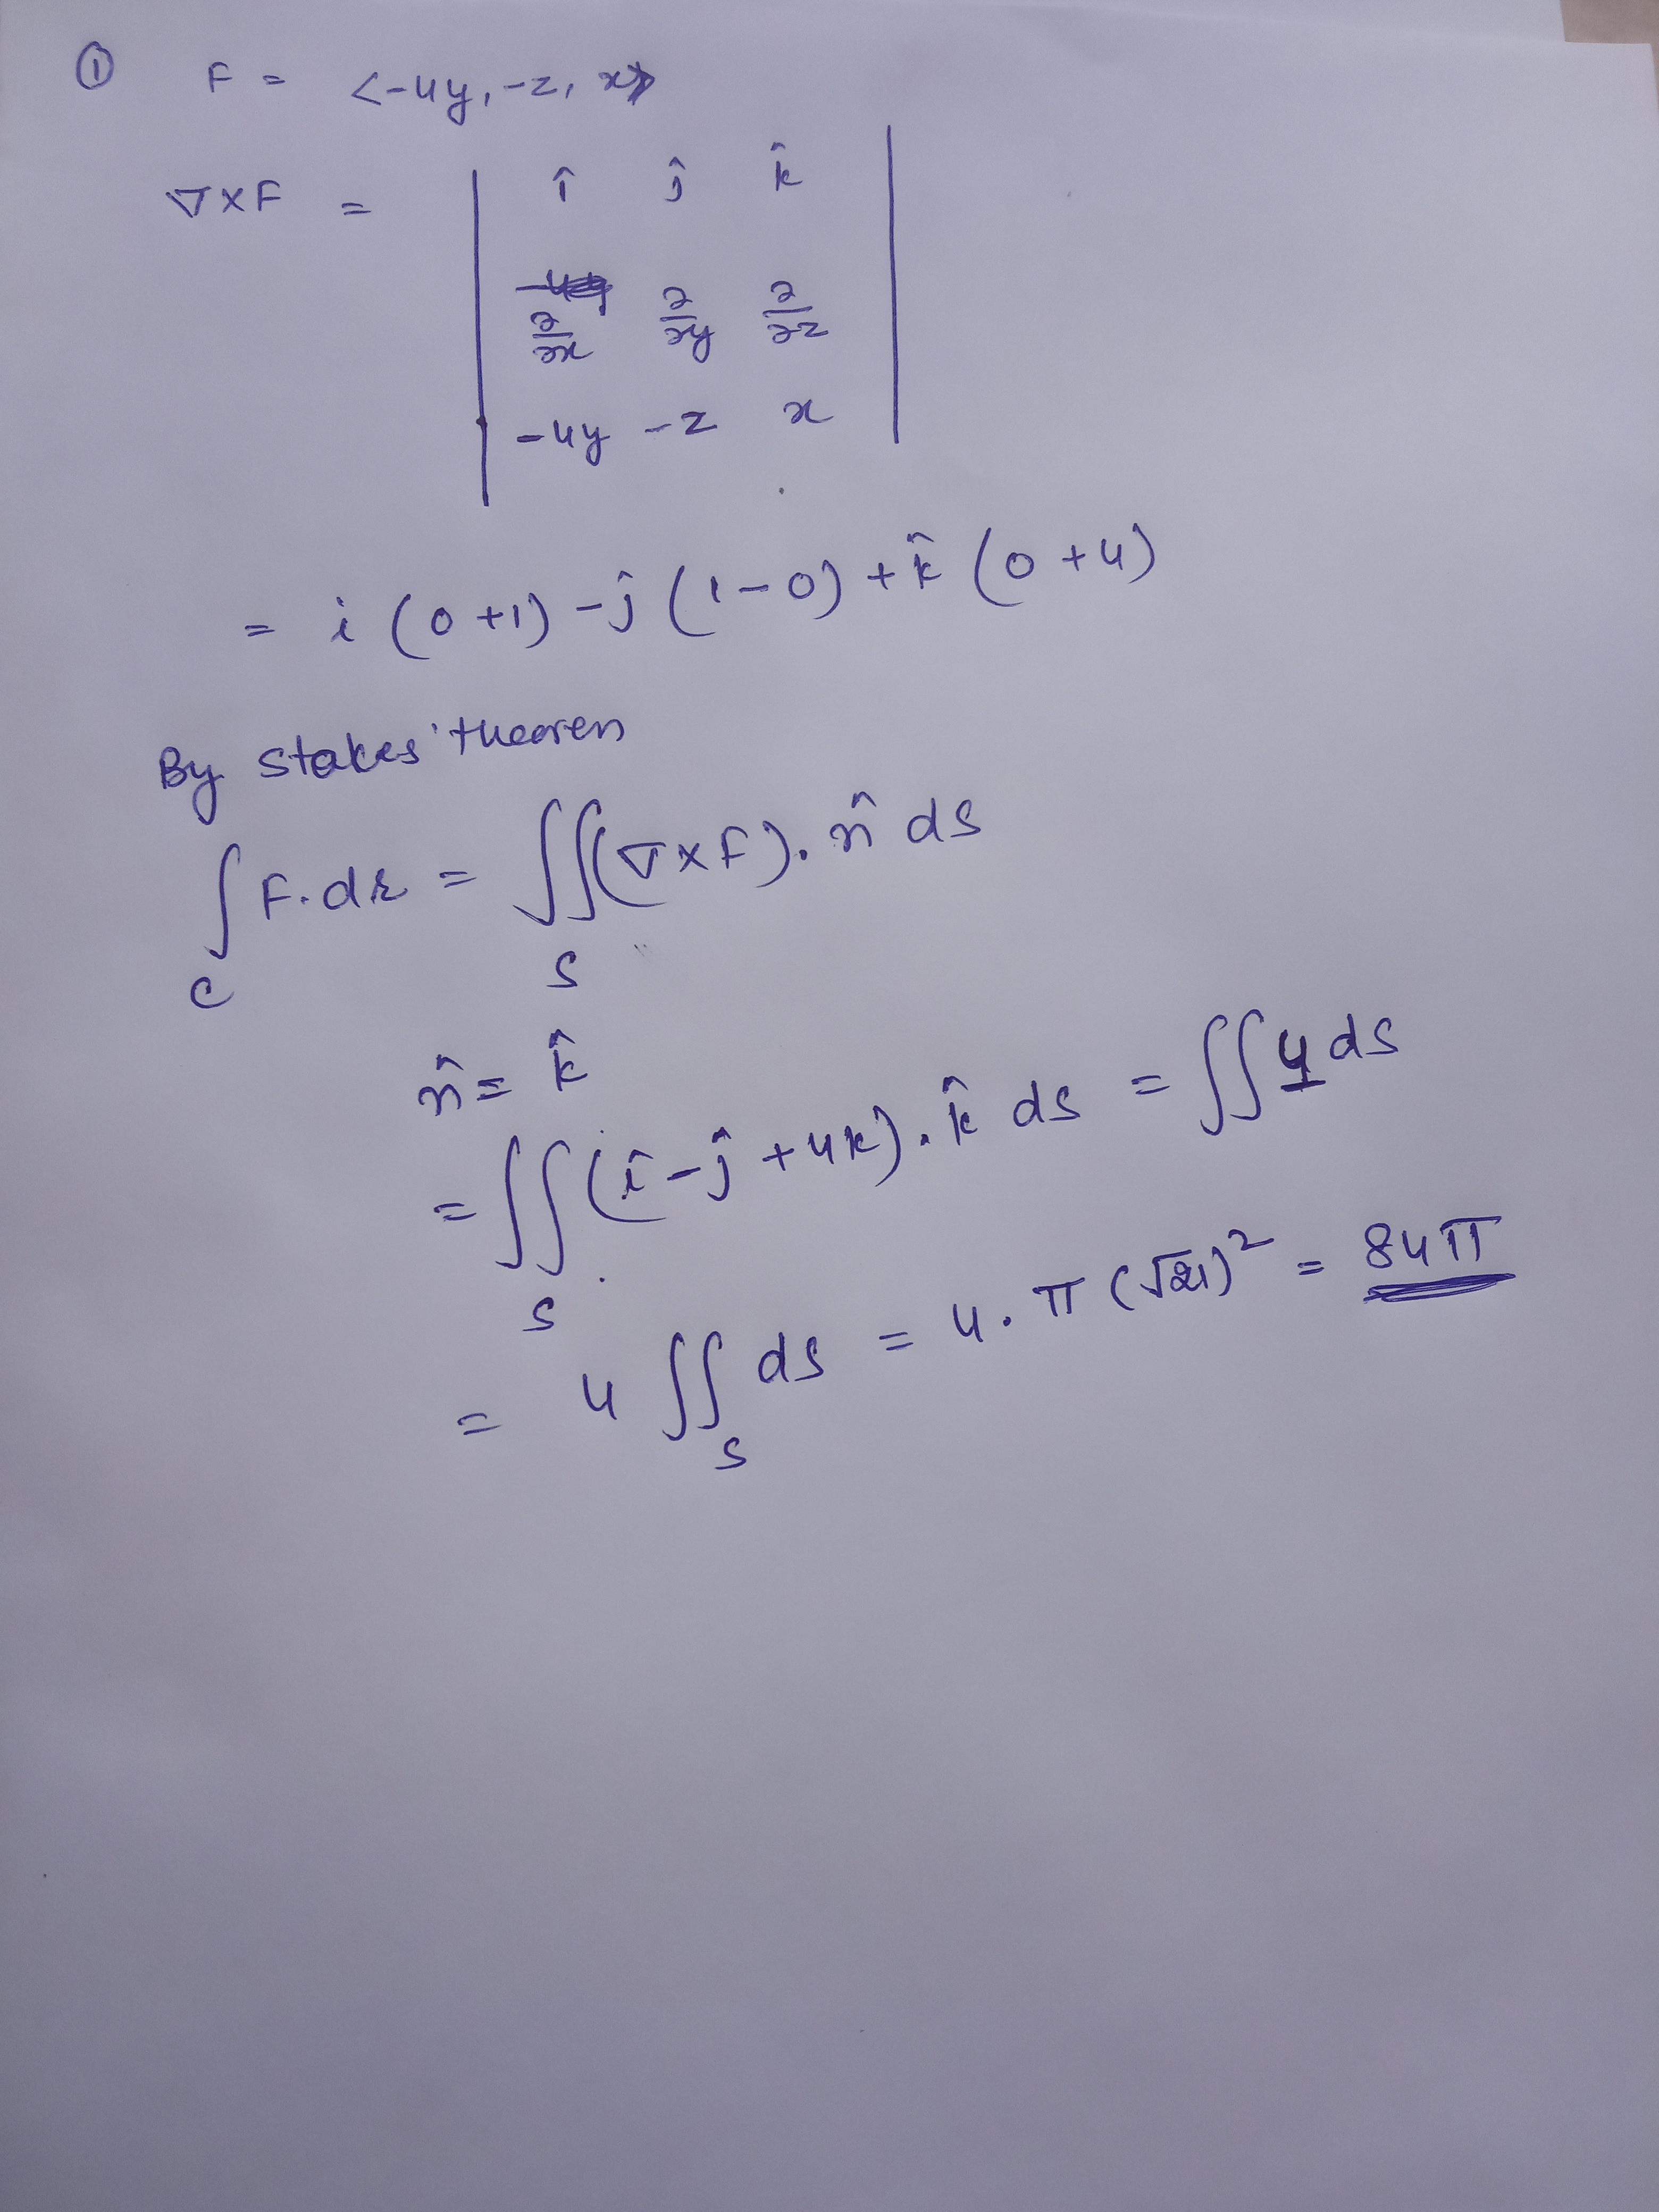 ① F = <-4y, -z, x>
∇×F = | î ĵ k̂ |
∂/∂x ∂/∂y ∂/∂z
-4y -z x
= i (0+1) - ĵ (1-0) + k̂ (0+4)
By Stokes' theorem
∫_C F.dr = ∬_S (∇×F). n̂ ds
n̂ = k̂
= ∬_S (î - ĵ + 4k). k̂ ds = ∬ 4 ds
= 4 ∬_S ds = 4. π (√21)² = 84π